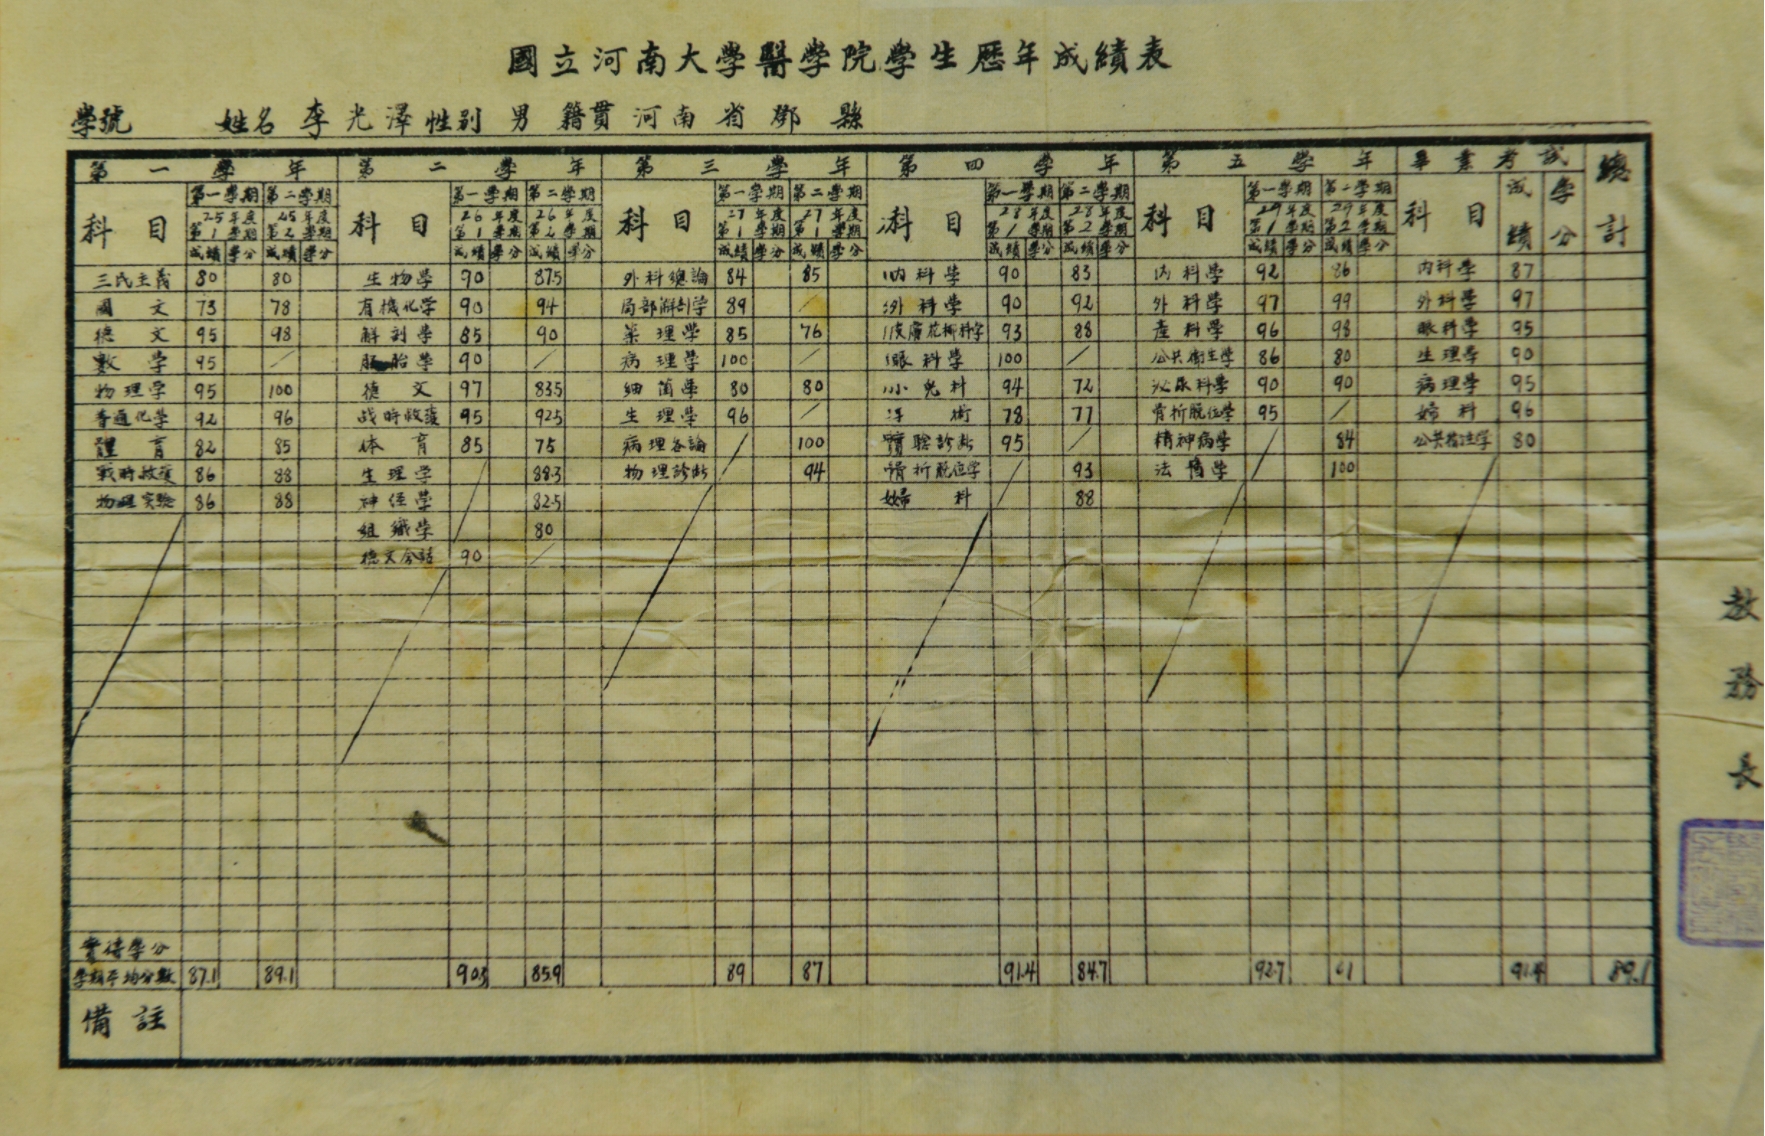 國立河南大學醫學院學生歷年成績表
學號 姓名 李光澤 性別 男 籍貫 河南省鄧縣
第一學年 第二學年 第三學年 第四學年 第五學年 畢業考試 總計
科目 第一學期 第二學期 科目 第一學期 第二學期 科目 第一學期 第二學期 科目 第一學期 第二學期 科目 第一學期 第二學期 科目 成績 學分
25年度 25年度 26年度 26年度 27年度 27年度 28年度 28年度 29年度 29年度
第1學期 第2學期 第1學期 第2學期 第1學期 第1學期 第1學期 第2學期 第1學期 第2學期
成績 學分 成績 學分 成績 學分 成績 學分 成績 學分 成績 學分 成績 學分 成績 學分 成績 學分 成績 學分
三民主義 80 80 生物學 90 87.5 外科總論 84 85 內科學 90 83 內科學 92 86 內科學 87
國文 73 78 有機化学 90 94 局部解剖学 89 外科學 90 92 外科學 97 99 外科學 97
德文 95 98 解剖學 85 90 藥理學 85 76 皮膚花柳科学 93 88 產科學 96 98 眼科學 95
數學 95 胚胎學 90 病理學 100 眼科學 100 公共衛生學 86 80 生理學 90
物理学 95 100 德文 97 83.5 細菌學 80 80 小兒科 94 72 泌尿科學 90 90 病理學 95
普通化學 92 96 战時救護 95 92.5 生理學 96 手術 78 77 骨折脫位學 95 婦科 96
體育 82 85 体育 85 75 病理各論 100 聽診断 95 精神病學 84 公共衛生学 80
戰時救護 86 88 生理学 88.3 物理診断 94 骨折脫位学 93 法醫學 100
物理実驗 86 88 神經學 82.5 婦科 88
組織學 80
德文会話 90
實得學分
學期平均分數 87.1 89.1 90.3 85.9 89 87 91.4 84.7 92.7 91.4 89.1
備註
教務長